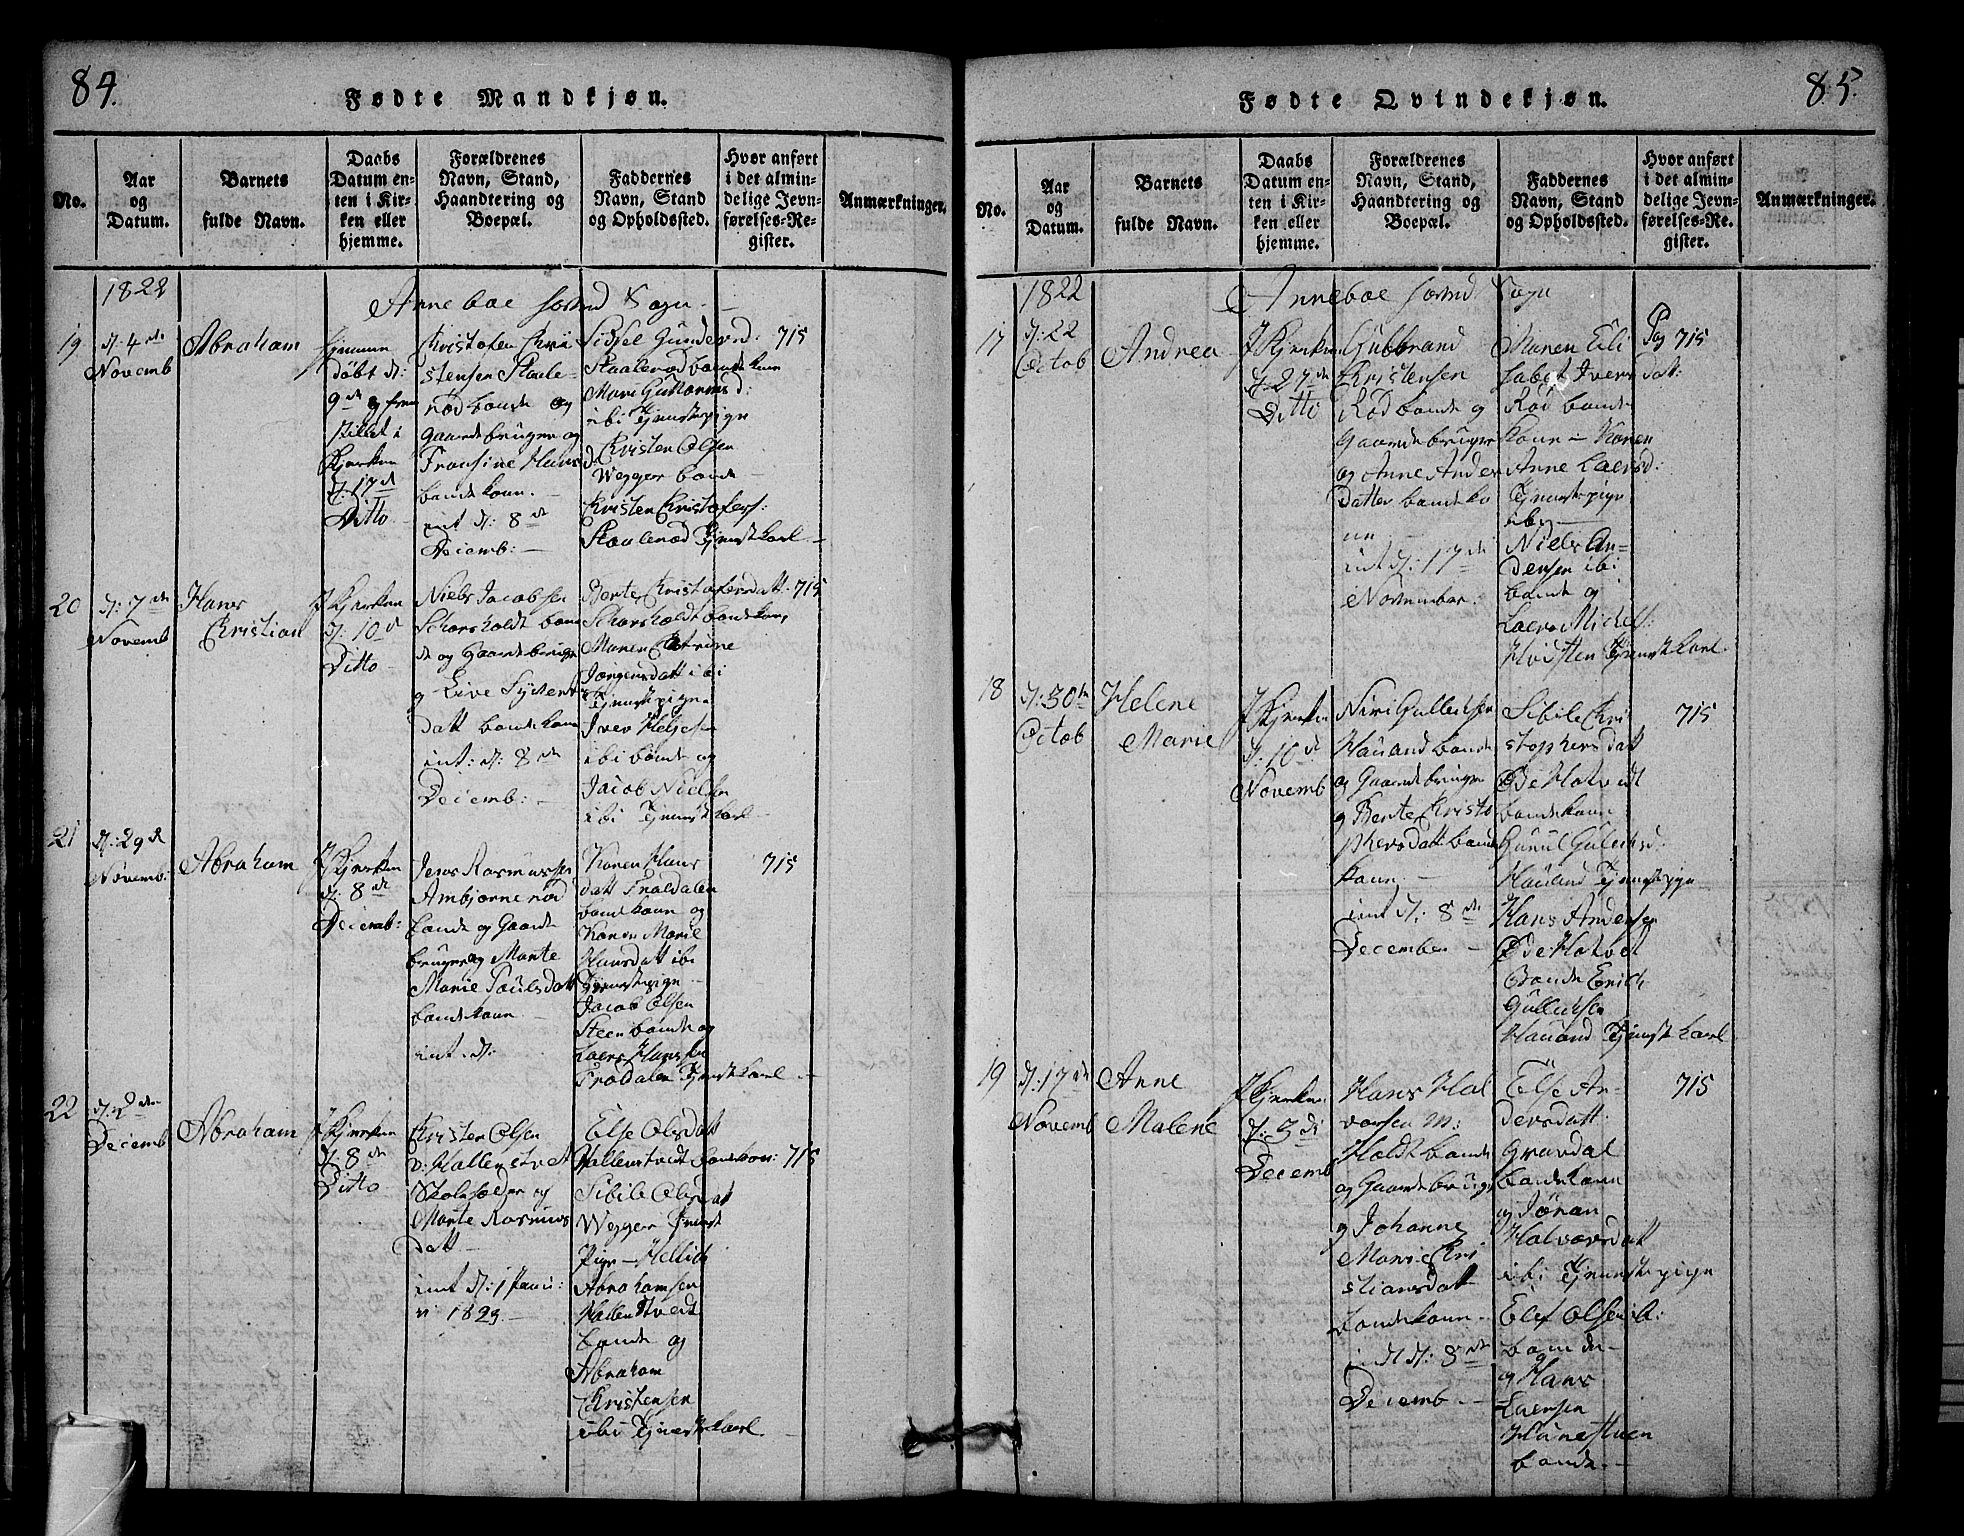 84.
Fødte Mandkjøn.
No.
Aar
og
Datum.
Barnets
fulde Navn.
Daabs
Datum en-
ten i Kir-
ken eller
hjemme.
Forældrenes
Navn, Stand,
Haandtering og
Boepæl.
Faddernes
Navn, Stand
og Opholdssted.
Hvor anført
i det almin-
delige Jevn-
førelses-Re-
gister.
Anmærkninger.
1822
Anneboe Sogn
19
d: 4de
Novemb
Abraham
døbt d:
9de og frem
stillet i
Kjerken
d: 17de
Ditto
Christofer Chri
stensen Staale-
rød bonde og
Gaardbruger og
Hans
bondekone.
int d: 8de
Decemb:
Sibjel Gundersd:
Staalerød bondekone
Mari Guttormsd:
ibi Tjenstepige
Christen Olsen
Wegger bonde
Christen Christofers:
Staalerød Tjenstkarl
715
20
d: 7de
Novemb
Hans
Christian
J Kjerken
d: 10de
Ditto
Niels Jacobsen
Schorsholdt bon
de og Gaardbruger
og Live
datt bondekone
int: d: 8de
Decemb:
Berte Christofersdatt
Schorsholdt bondekone
Maren Catrine
Jørgensdatt ibi
Tjenstepige
Iver Heljesen
ibi bonde og
Jacob Nielsen
ibi Tjenstkarl
715
21
d: 29de
Novemb.
Abraham
J Kjerken
d: 8de
Decemb:
Jens Rasmussen
Ambjørnerød
bonde og Gaard
bruger og Marte
Marie Paulsdatt
bondekone
int. d:
Karen Hans
datt Frodalen
bondekone og
Karen Marie
Hansdatt ibi
Tjenstepige
Jacob Olsen
Steen bonde og
Laers Hansen
Frodalen Tjenstkarl
715
22
d: 2den
Decemb
Abraham
J Kjerken
d: 8de
Ditto
Christen Olsen
v: Hallenstvedt
Skoleholder og
Marte Rasmus
datt
int d: 1 Janu:
1823.
Else Olsdatt
Hallenstvedt bondekone:
Sibile Olsdatt
Wegger Tjenst
Pige
Abrahamsen
Hallenstvedt
bonde og
Abraham
Christensen
ibi Tjenstkarl
715
85.
Fødte Qvindekjøn.
No.
Aar
og
Datum.
Barnets
fulde Navn.
Daabs
Datum en-
ten i Kir-
ken eller
hjemme.
Forældrenes
Navn, Stand,
Haandtering og
Boepæl.
Faddernes
Navn, Stand
og Opholdssted.
Hvor anført
i det almin-
delige Jevn-
førelses-Re-
gister.
Anmærkninger.
1822
Anneboe Sogn
17
d: 22
Octob
Andrea
J Kjerken
d: 27de
Ditto
Gulbrand
Christensen
Rød bonde og
Gaardbruger
og Anne Anders
datter bondeko
ne
int d: 17de
November.
Maren Eli
sabet Ivers dat:
Rød bonde
Kone – Karen
Anne Laersd:
Tjenstepige
iby
Niels An=
dersen ibi
bonde og
Laers Michels:
Tjenstkarl
Pag 715
18
d: 30te
Octob
Helene
Marie
J Kjerken
d: 10de
Novemb
Gullichsen
Hauand bonde
og Gaardbruger
og Berte Christo
phersdatt bonde
kone.
int d: 8de
December
Sibile Chri
stophersdatt
Øde Holtvedt
bondekone
Gunil Gulichsd:
Hauand Tjenstepige
Hans Andersen
Øde Holtvet
Bonde Erich
Gullichsen
Hauand Tjenstkarl
715
19
d: 17de
Novemb
Anne
Malene
J Kjerken
d: 3de
Decemb
Hans Hal
vorsen m:
Holdt bonde
og Gaardbruger
og Johanne
Marie Chri
stiansdatt
bondekone
ind d: 8de
Decemb
Else An-
dersdatt:
Gravdal
bondekone
og Jøran
Halvorsdatt
ibi Tjenstepige
Elef Olsen ib:
bonde
og Hans
Laersen
bonde.
715